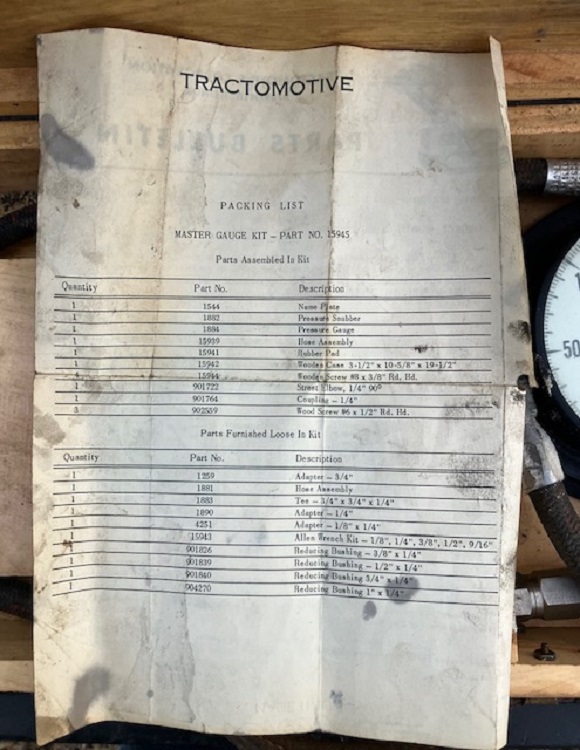 TRACTOMOTIVE
PARTS BULLETIN
PACKING LIST
MASTER GAUGE KIT – PART NO. 15945
Parts Assembled In Kit
Quantity Part No. Description
1 1544 Name Plate
1 1882 Pressure Snubber
1 1884 Pressure Gauge
1 15939 Hose Assembly
1 15941 Rubber Pad
1 15942 Wooden Case 3-1/2" x 10-5/8" x 19-1/2"
Screw #8 x 3/8" Rd. Hd.
1 901722 Street Elbow, 1/4" 90°
1 901764 Coupling – 1/4"
902559 Wood Screw #6 x 1/2" Rd. Hd.
Parts Furnished Loose In Kit
Quantity Part No. Description
1 1259 Adapter – 3/4"
1 1881 Hose Assembly
1 1883 Tee – 3/4" x 3/4" x 1/4"
1 1890 Adapter – 1/4"
1 4251 Adapter – 1/8" x 1/4"
1 15943 Allen Wrench Kit – 1/8", 1/4", 3/8", 1/2", 9/16"
1 901826 Reducing Bushing – 3/8" x 1/4"
1 901839 Reducing Bushing – 1/2" x 1/4"
1 901840 Reducing Bushing 3/4" x 1/4"
1 904270 Reducing Bushing 1" x 1/4"
50